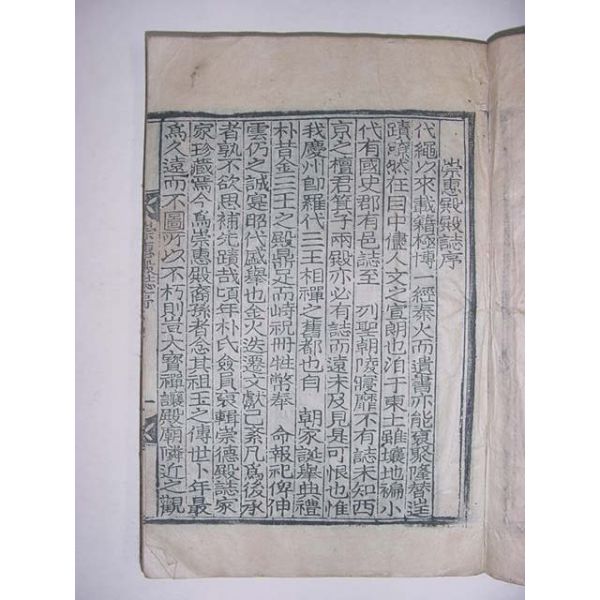 崇惠殿殿誌序
代繩以來載籍極博一經秦火而遺書亦能裒聚隆替逞
蹟瞭然在目中儘人文之宣朗也洎于東土雖壤地褊小
代有國史郡有邑誌至 列聖朝陵寢靡不有誌未知西
京之檀君箕子兩殿亦必有誌而遠未及見是可恨也惟
我慶州卽羅代三王相禪之舊都也自 朝家誕擧典禮
朴昔金三王之殿鼎足而峙祝冊牲幣奉 命報祀俾伸
雲仍之誠寔昭代盛擧也金火迭遷文獻已紊凡爲後承
者孰不欲思補先蹟哉頃年朴氏僉員裒輯崇德殿誌家
家珍藏焉今爲崇惠殿裔孫者念其祖王之傳世卜年最
爲久遠而不圖所以不朽則豈大寶禪讓殿廟隣近之觀
崇惠殿誌序
一